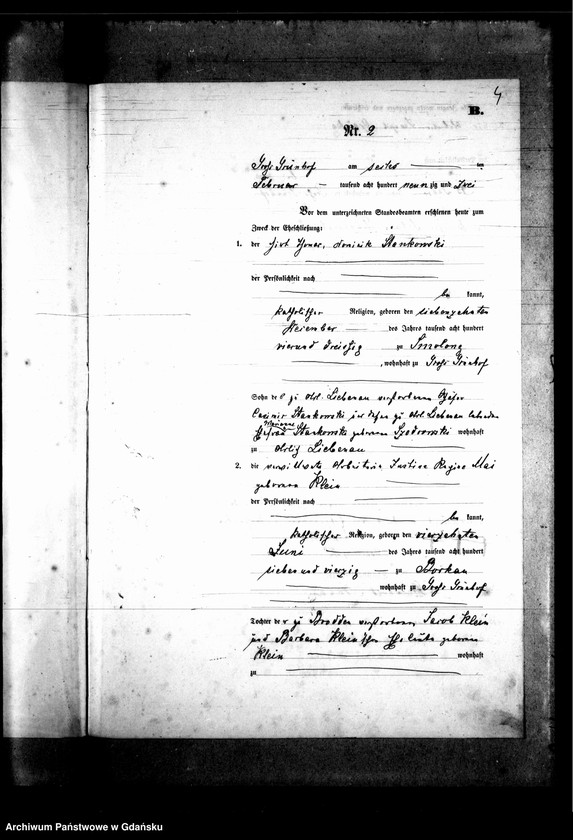 4
B.
Nr. 2
Groß Grünhof am sechs ten
Februar tausend acht hundert neun zig und zwei
Vor dem unterzeichneten Standesbeamten erschienen heute zum
Zweck der Eheschließung:
1. der Hirt Dominik Stankowski
der Persönlichkeit nach
be kannt,
katholischer Religion, geboren den siebenzehnten
des Jahres tausend acht hundert
vier und dreißig zu Smolong
, wohnhaft zu Groß Grünhof
Sohn de zu Adl. Liebenau verstorbenen
Casimir Stankowski und dessen zu Adl. Liebenau lebenden
Marianne
Ehefrau Stankowski geborenen wohnhaft
zu Adlig Liebenau
2. die verwittwete Arbeiterin Justine Regine Mai
geborene Klein
der Persönlichkeit nach
be kannt,
katholischer Religion, geboren den vierzehnten
Juni des Jahres tausend acht hundert
sieben und vierzig zu Borkau
wohnhaft zu Groß Grünhof
Tochter der zu Brodden verstorbenen Jacob Klein
und Barbara Klein'schen Eheleute geborene
Klein wohnhaft
zu
Archiwum Państwowe w Gdańsku